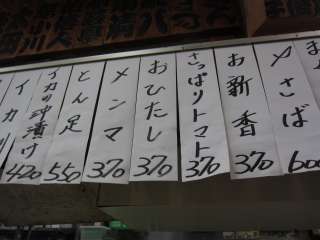 〆さば
600
お新香
370
さっぱりトマト
370
おひたし
370
メンマ
370
とん足
550
イカの沖漬け
420
イカ